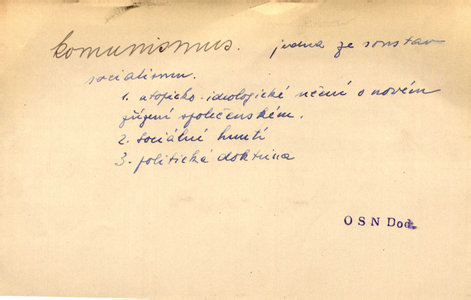 komunismus. jedna ze soustav
socialismu.
1. utopicko-ideologické učení o novém
zřízení společenském.
2. sociálné hnutí
3. politická doktrina
OSN Dod.